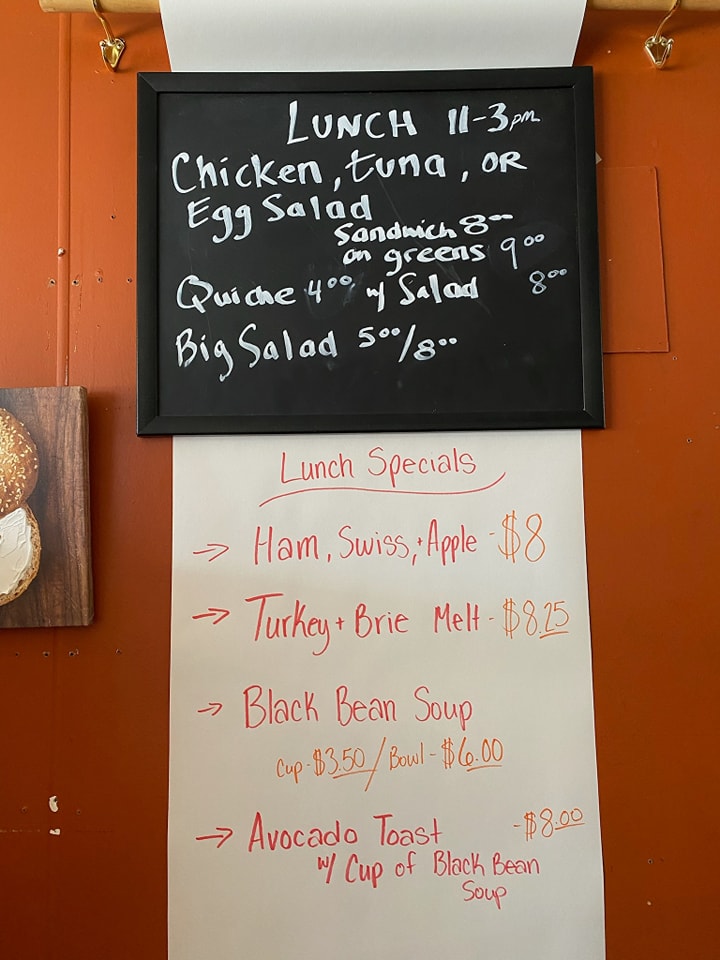 LUNCH 11-3pm
Chicken, tuna, OR
Egg Salad
Sandwich 8⁰⁰
on greens 9⁰⁰
Quiche 4⁰⁰ w/ Salad 8⁰⁰
Big Salad 5⁰⁰/8⁰⁰
Lunch Specials
→ Ham, Swiss, + Apple - $8
→ Turkey + Brie Melt - $8.25
→ Black Bean Soup
Cup - $3.50 / Bowl - $6.00
→ Avocado Toast - $8.00
w/ Cup of Black Bean
Soup